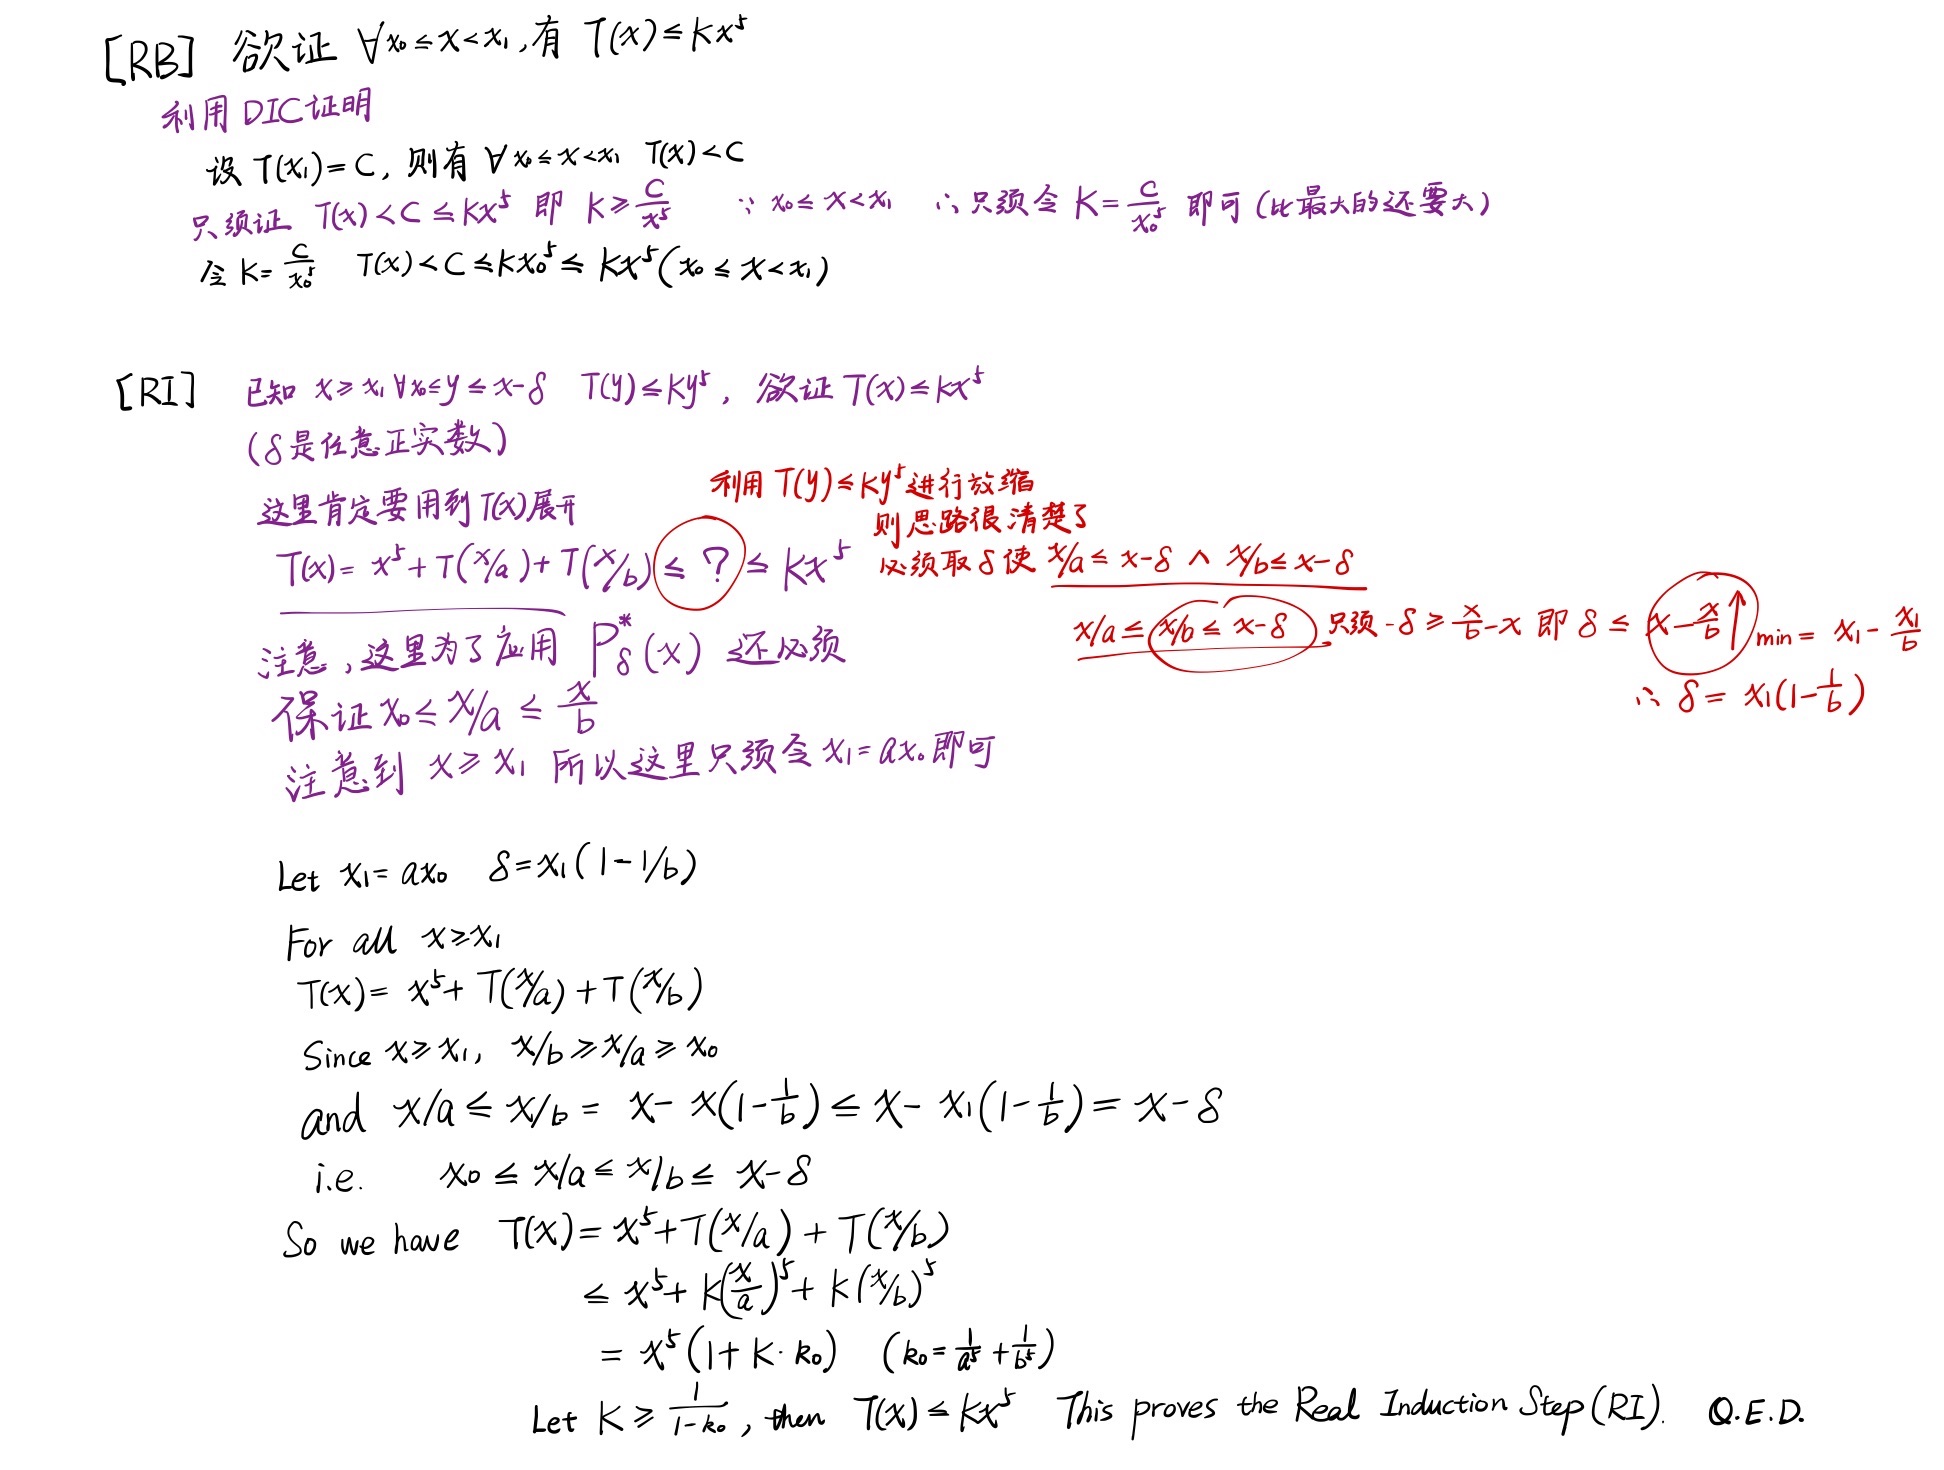 [RB] 欲证 ∀x₀≤x<x₁,有 T(x)≤Kx⁵
利用DIC证明
设 T(x₁)=C, 则有 ∀x₀≤x<x₁ T(x)<C
只须证 T(x)<C≤Kx⁵ 即 K≥C/x⁵ ∵ x₀≤x<x₁ ∴只须令 K=C/x₀⁵ 即可(比最大的还要大)
令 K=C/x₀⁵ T(x)<C≤Kx₀⁵≤Kx⁵(x₀≤x<x₁)
[RI] 已知 x≥x₁ ∀x₀≤y≤x-δ T(y)≤Ky⁵, 欲证 T(x)≤Kx⁵
(δ是任意正实数)
这里肯定要用到T(x)展开
T(x)=x⁵+T(x/a)+T(x/b)≤?≤Kx⁵
利用 T(y)≤Ky⁵进行放缩
则思路很清楚了
必须取δ使 x/a≤x-δ ∧ x/b≤x-δ
x/a≤x/b≤x-δ 只须 -δ≥x/b-x 即 δ≤x-x/b↑ min = x₁-x₁/b
∴ δ=x₁(1-1/b)
注意,这里为了应用 P*δ(x) 还必须
保证x₀≤x/a≤x/b
注意到 x≥x₁ 所以这里只须令x₁=ax₀即可
Let x₁=ax₀ δ=x₁(1-1/b)
For all x≥x₁
T(x)= x⁵+T(x/a)+T(x/b)
Since x≥x₁, x/b≥x/a≥x₀
and x/a≤x/b= x-x(1-1/b)≤x-x₁(1-1/b)=x-δ
i.e. x₀≤x/a≤x/b≤x-δ
So we have T(x)=x⁵+T(x/a)+T(x/b)
≤x⁵+K(x/a)⁵+K(x/b)⁵
=x⁵(1+K·k₀) (k₀=1/a⁵+1/b⁵)
Let K≥1/(1-k₀), then T(x)≤Kx⁵ This proves the Real Induction Step(RI). Q.E.D.